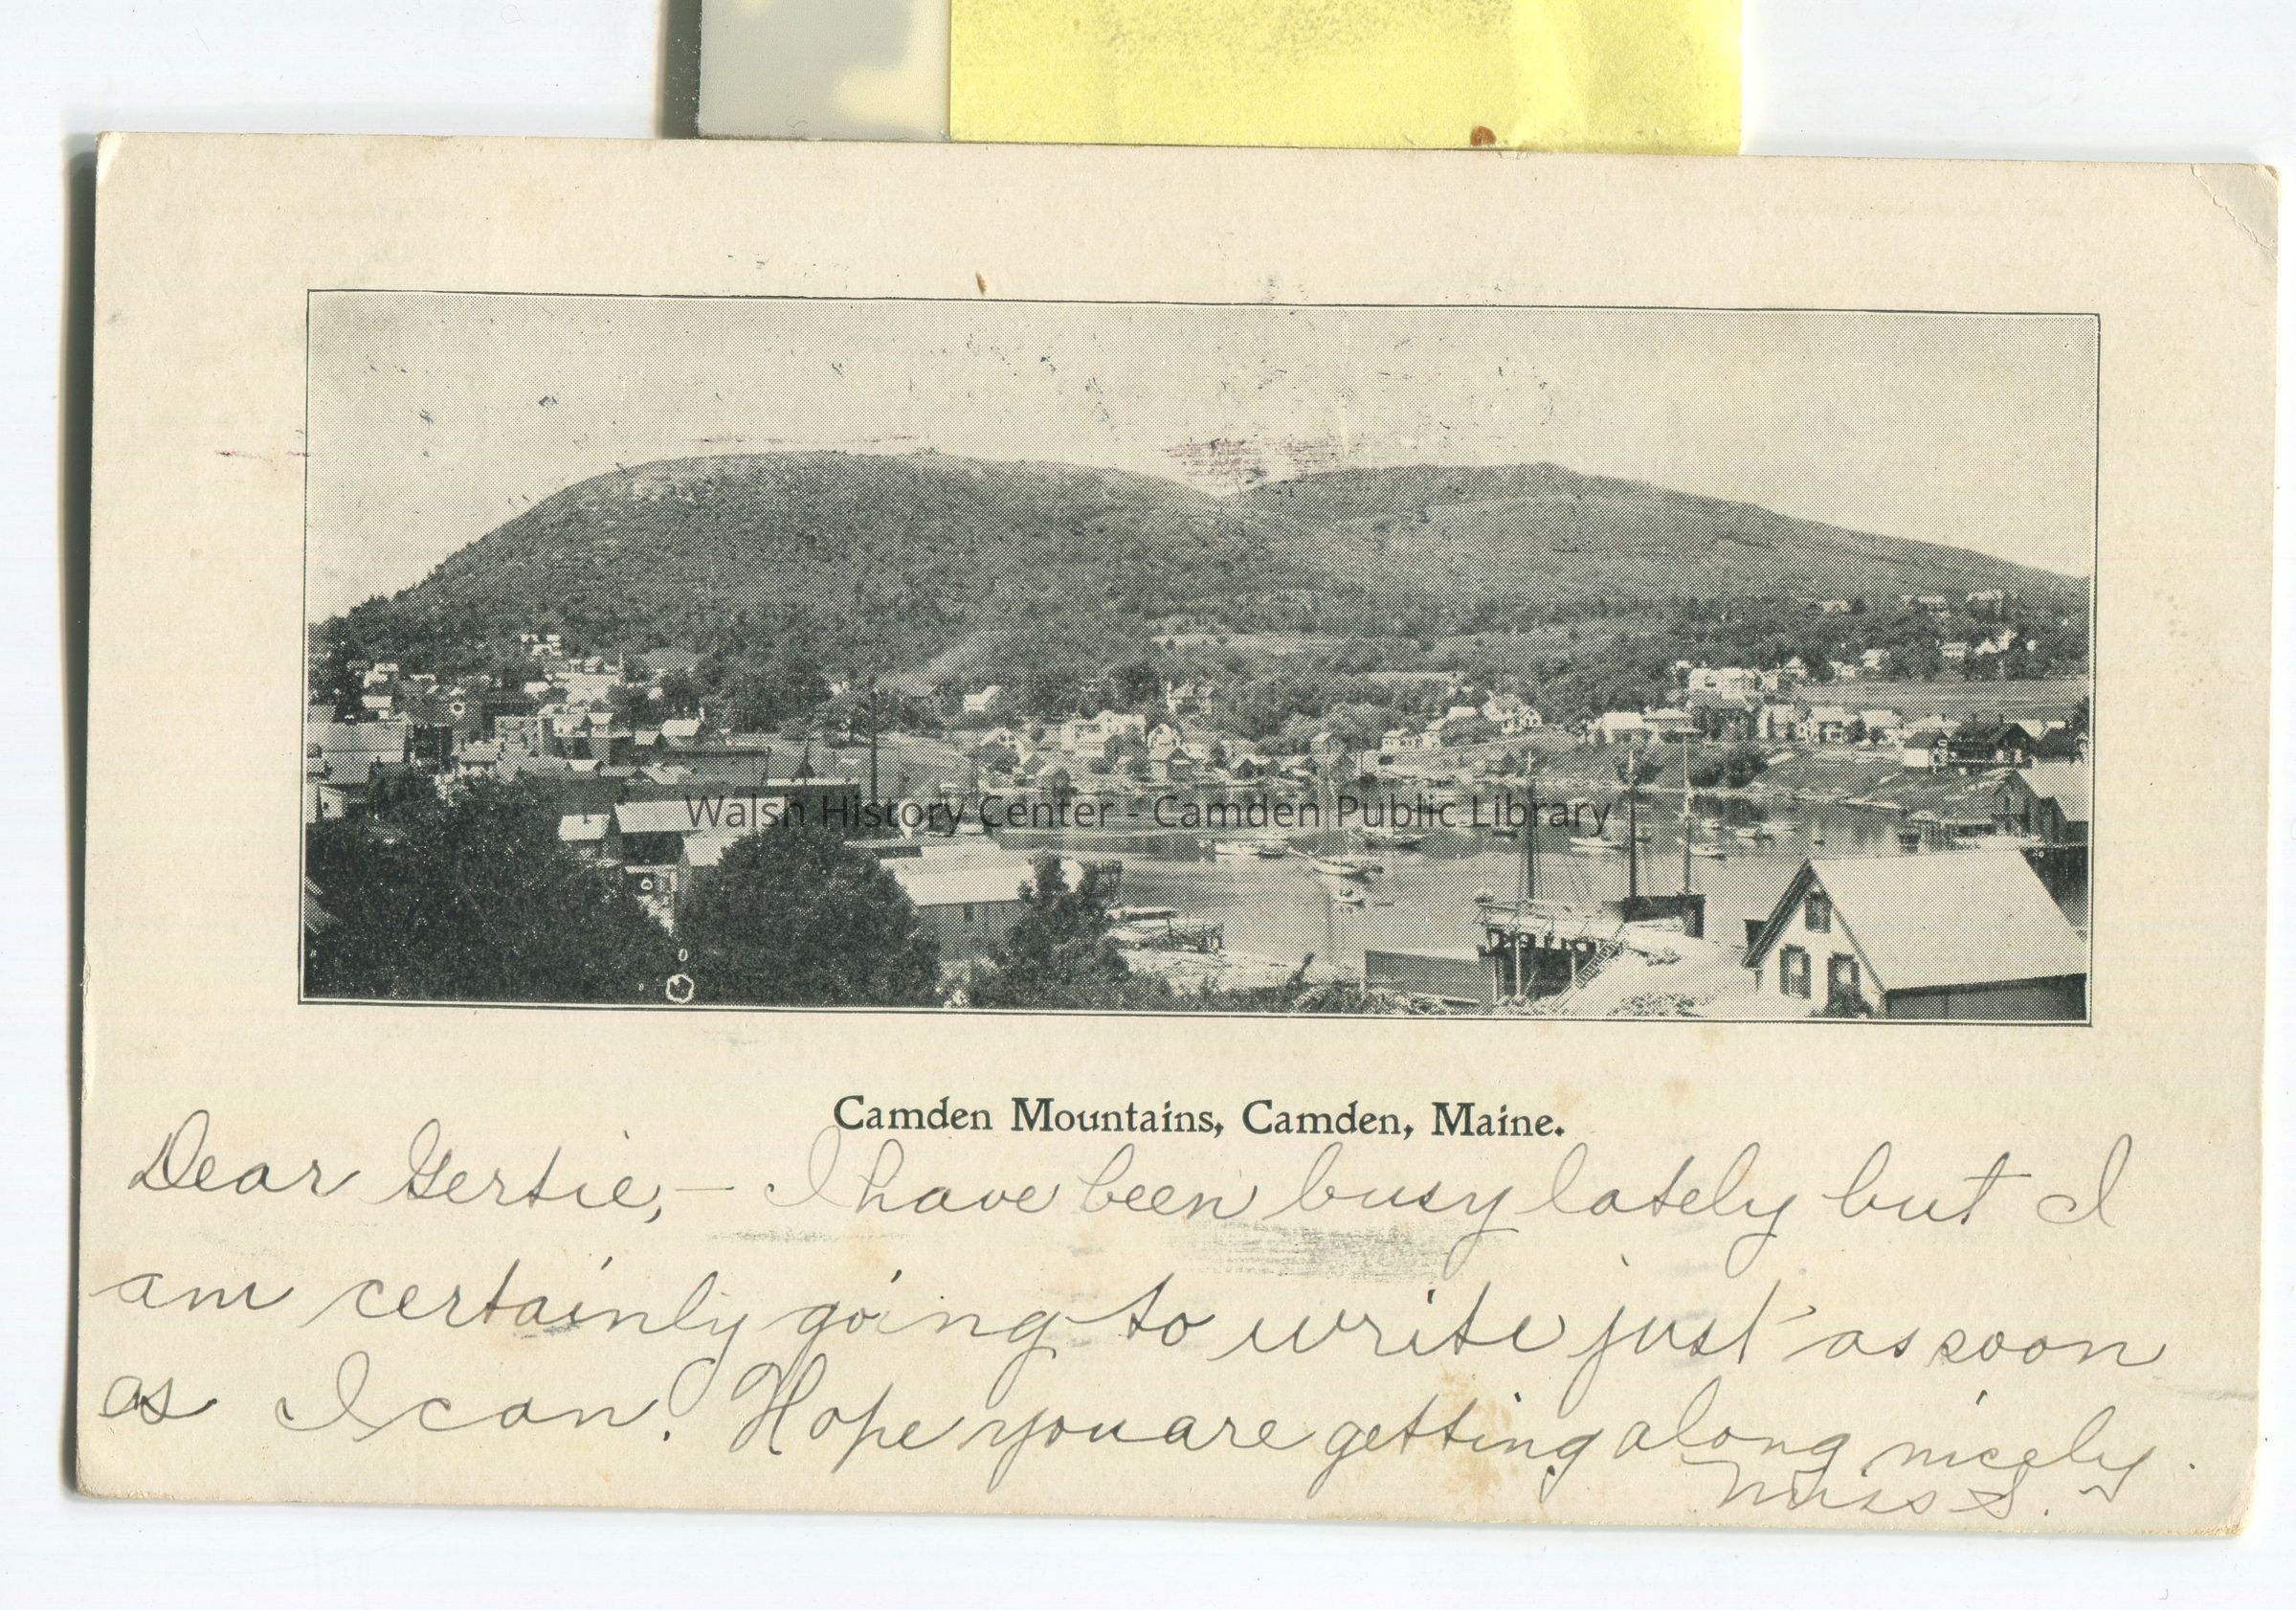 Walsh History Center - Camden Public Library
Camden Mountains, Camden, Maine.
Dear Gertie,- I have been busy lately but I
am certainly going to write just as soon
as I can. Hope you are getting along nicely.
Miss S.